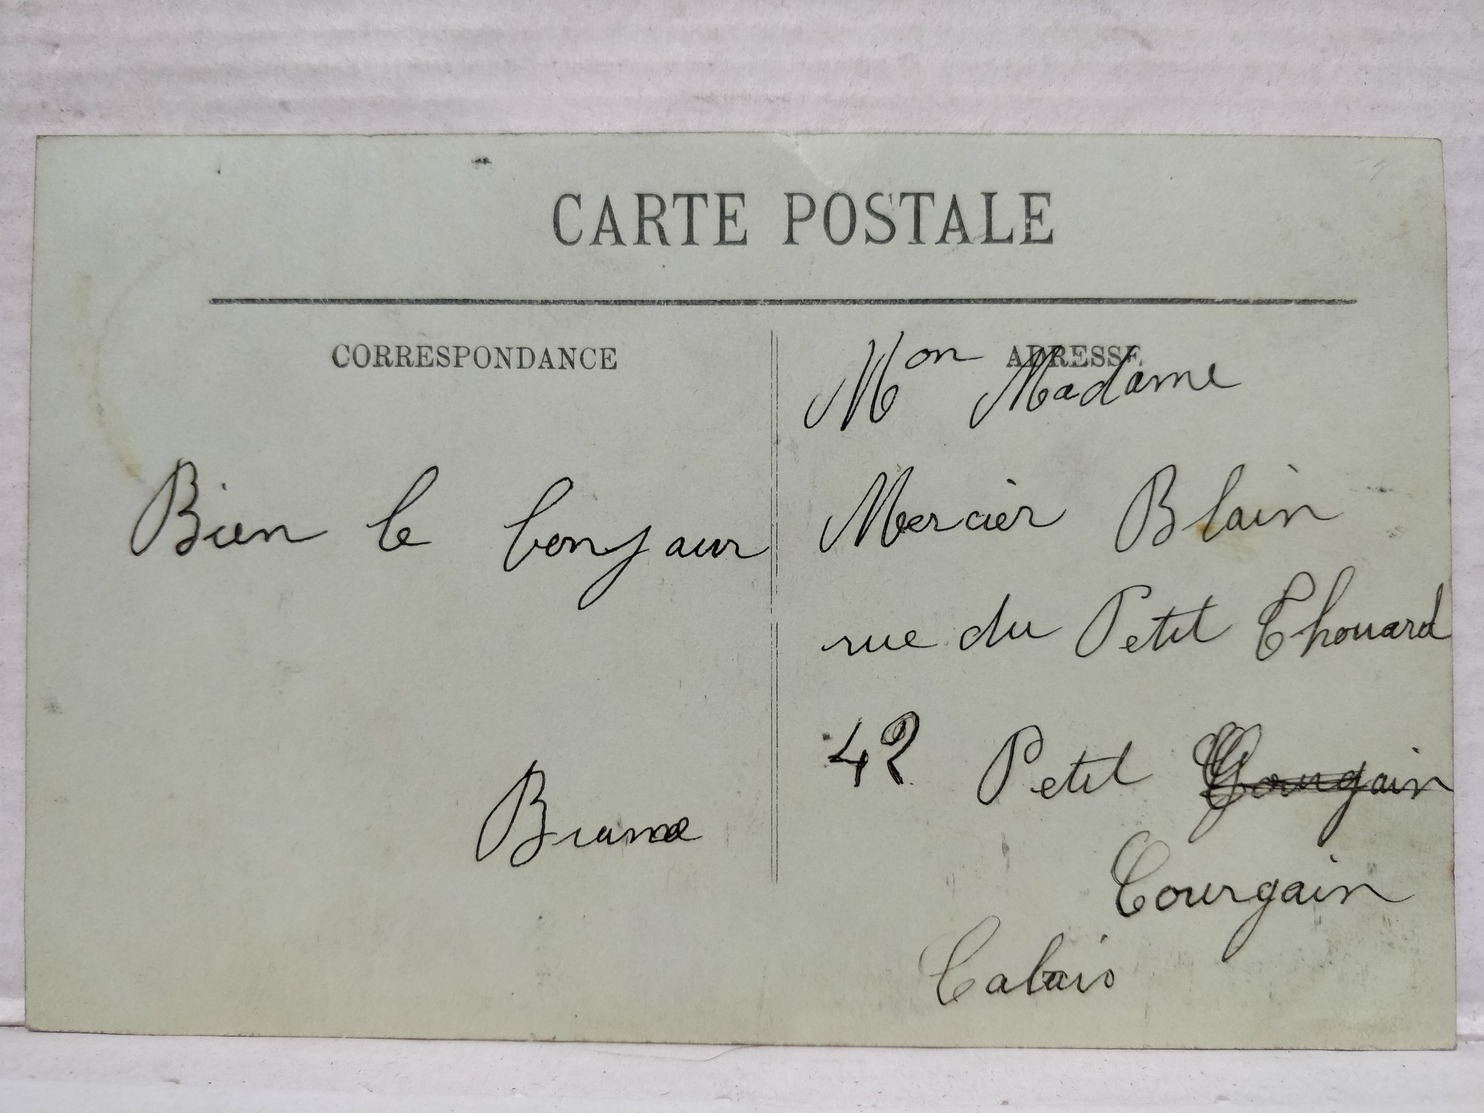 CARTE POSTALE
CORRESPONDANCE
Bien le bonjour
ADRESSE
Mon Madame
Mercier Blain
rue du Petit Thouard
42 Petit
Courgain
Calais